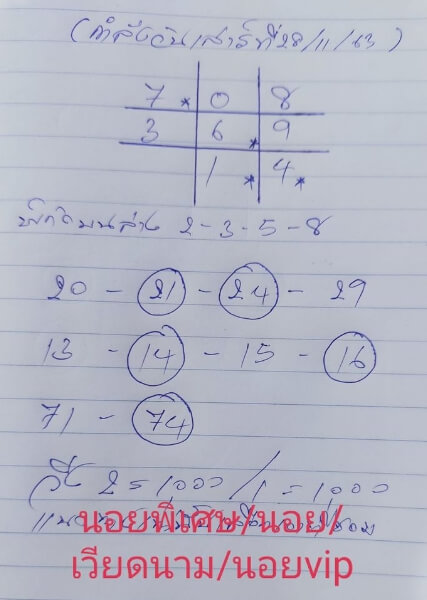 (กำลังวันเสาร์ที่28/11/63)
7* 0 8
3 6* 9
1* 4*
บนล่าง 2-3-5-8
20 - 21 - 24 - 29
13 - 14 - 15 - 16
71 - 74
2=1000/1=1000
นอยพิเศษ/นอย/
เวียดนาม/นอยvip